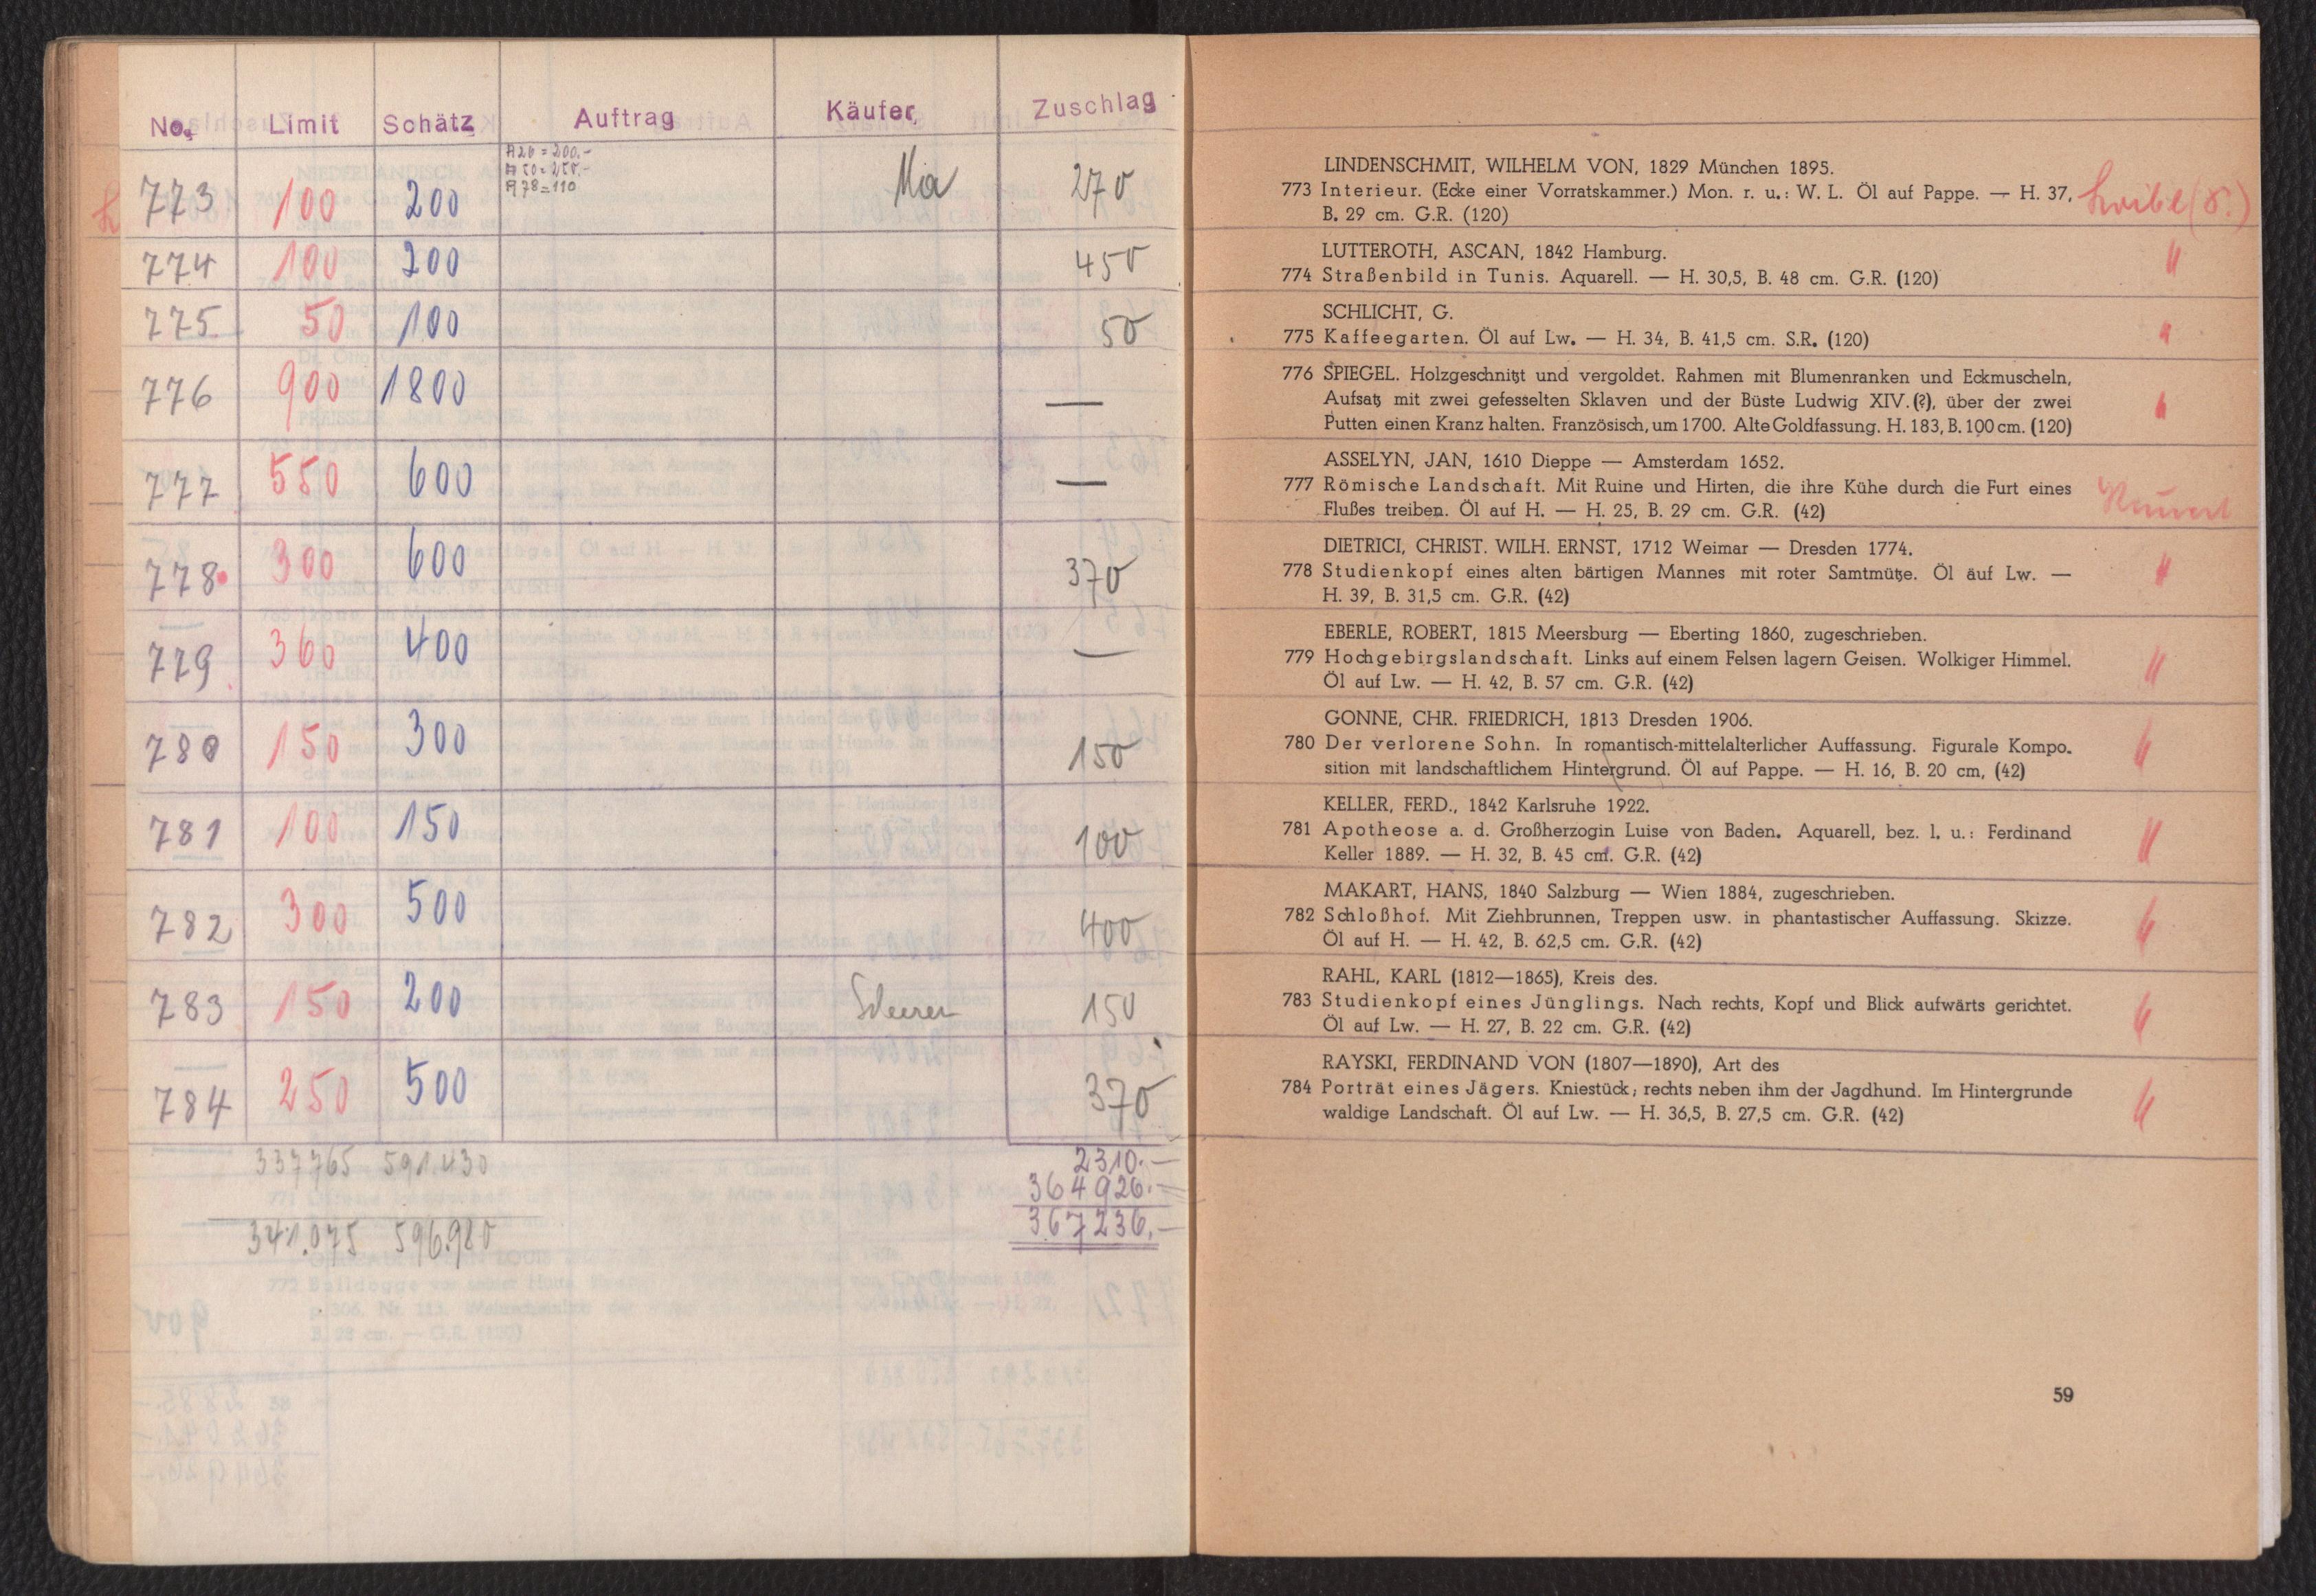 No. Limit Schätz Auftrag Käufer Zuschlag
A26 = 200.-
A50 = 250.-
A78 = 110
773 100 200 Ma 270
774 100 200 450
775 50 100 50
776 900 1800 —
777 550 600 —
778 300 600 370
779 360 400 —
780 150 300 150
781 100 150 100
782 300 500 400
783 150 200 Scheerer 150
784 250 500 370
337765 591.430 2310.—
364926.—
341.075 596.980 367236.—
LINDENSCHMIT, WILHELM VON, 1829 München 1895.
773 Interieur. (Ecke einer Vorratskammer.) Mon. r. u.: W. L. Öl auf Pappe. — H. 37,
B. 29 cm. G.R. (120)
LUTTEROTH, ASCAN, 1842 Hamburg.
774 Straßenbild in Tunis. Aquarell. — H. 30,5, B. 48 cm. G.R. (120) "
SCHLICHT, G.
775 Kaffeegarten. Öl auf Lw. — H. 34, B. 41,5 cm. S.R. (120) "
776 SPIEGEL. Holzgeschnitzt und vergoldet. Rahmen mit Blumenranken und Eckmuscheln,
Aufsatz mit zwei gefesselten Sklaven und der Büste Ludwig XIV. (?), über der zwei "
Putten einen Kranz halten. Französisch, um 1700. Alte Goldfassung. H. 183, B. 100 cm. (120)
ASSELYN, JAN, 1610 Dieppe — Amsterdam 1652.
777 Römische Landschaft. Mit Ruine und Hirten, die ihre Kühe durch die Furt eines
Flußes treiben. Öl auf H. — H. 25, B. 29 cm. G.R. (42)
DIETRICI, CHRIST. WILH. ERNST, 1712 Weimar — Dresden 1774.
778 Studienkopf eines alten bärtigen Mannes mit roter Samtmütze. Öl auf Lw. — "
H. 39, B. 31,5 cm. G.R. (42)
EBERLE, ROBERT, 1815 Meersburg — Eberting 1860, zugeschrieben.
779 Hochgebirgslandschaft. Links auf einem Felsen lagern Geisen. Wolkiger Himmel. "
Öl auf Lw. — H. 42, B. 57 cm. G.R. (42)
GONNE, CHR. FRIEDRICH, 1813 Dresden 1906.
780 Der verlorene Sohn. In romantisch-mittelalterlicher Auffassung. Figurale Kompo- "
sition mit landschaftlichem Hintergrund. Öl auf Pappe. — H. 16, B. 20 cm, (42)
KELLER, FERD., 1842 Karlsruhe 1922.
781 Apotheose a. d. Großherzogin Luise von Baden. Aquarell, bez. l. u.: Ferdinand "
Keller 1889. — H. 32, B. 45 cm. G.R. (42)
MAKART, HANS, 1840 Salzburg — Wien 1884, zugeschrieben.
782 Schloßhof. Mit Ziehbrunnen, Treppen usw. in phantastischer Auffassung. Skizze. "
Öl auf H. — H. 42, B. 62,5 cm. G.R. (42)
RAHL, KARL (1812—1865), Kreis des.
783 Studienkopf eines Jünglings. Nach rechts, Kopf und Blick aufwärts gerichtet. "
Öl auf Lw. — H. 27, B. 22 cm. G.R. (42)
RAYSKI, FERDINAND VON (1807—1890), Art des
784 Porträt eines Jägers. Kniestück; rechts neben ihm der Jagdhund. Im Hintergrunde "
waldige Landschaft. Öl auf Lw. — H. 36,5, B. 27,5 cm. G.R. (42)
59